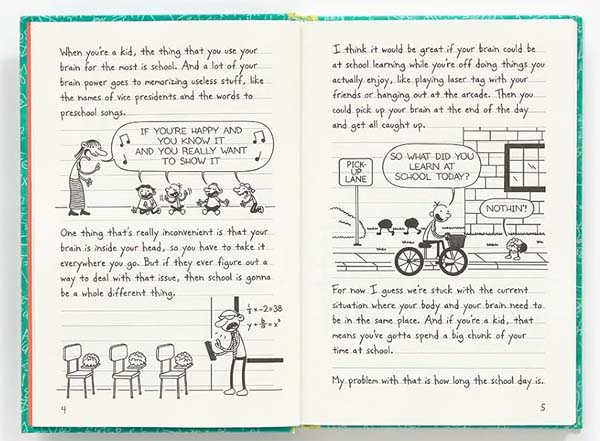 When you're a kid, the thing that you use your
brain for the most is school. And a lot of your
brain power goes to memorizing useless stuff, like
the names of vice presidents and the words to
preschool songs.
IF YOU'RE HAPPY AND
YOU KNOW IT
AND YOU REALLY WANT
TO SHOW IT
One thing that's really inconvenient is that your
brain is inside your head, so you have to take it
everywhere you go. But if they ever figure out a
way to deal with that issue, then school is gonna
be a whole different thing.
4
I think it would be great if your brain could be
at school learning while you're off doing things you
actually enjoy, like playing laser tag with your
friends or hanging out at the arcade. Then you
could pick up your brain at the end of the day
and get all caught up.
PICK-
UP
LANE
SO WHAT DID YOU
LEARN AT
SCHOOL TODAY?
NOTHIN'!
For now I guess we're stuck with the current
situation where your body and your brain need to
be in the same place. And if you're a kid, that
means you've gotta spend a big chunk of your
time at school.
My problem with that is how long the school day is.
5